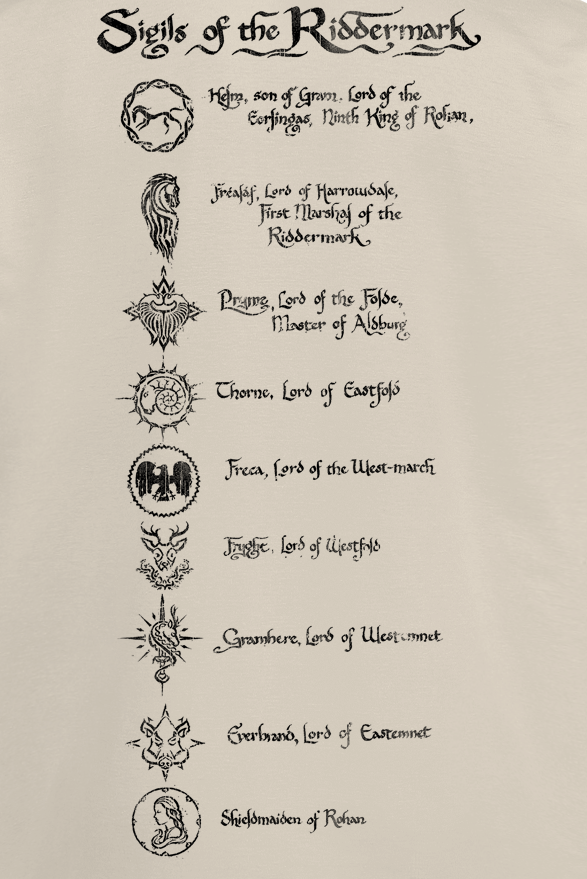 Sigils of the Riddermark
Helm, son of Gram, Lord of the
Eorlingas, Ninth King of Rohan,
Fréaláf, Lord of Harrowdale,
First Marshal of the
Riddermark
Lord of the Folde,
Master of Aldburg
Thorne, Lord of Eastfold
Freca, Lord of the West-march
Lord of Westfold
Lord of Westemnet
Lord of Eastemnet
Shieldmaiden of Rohan